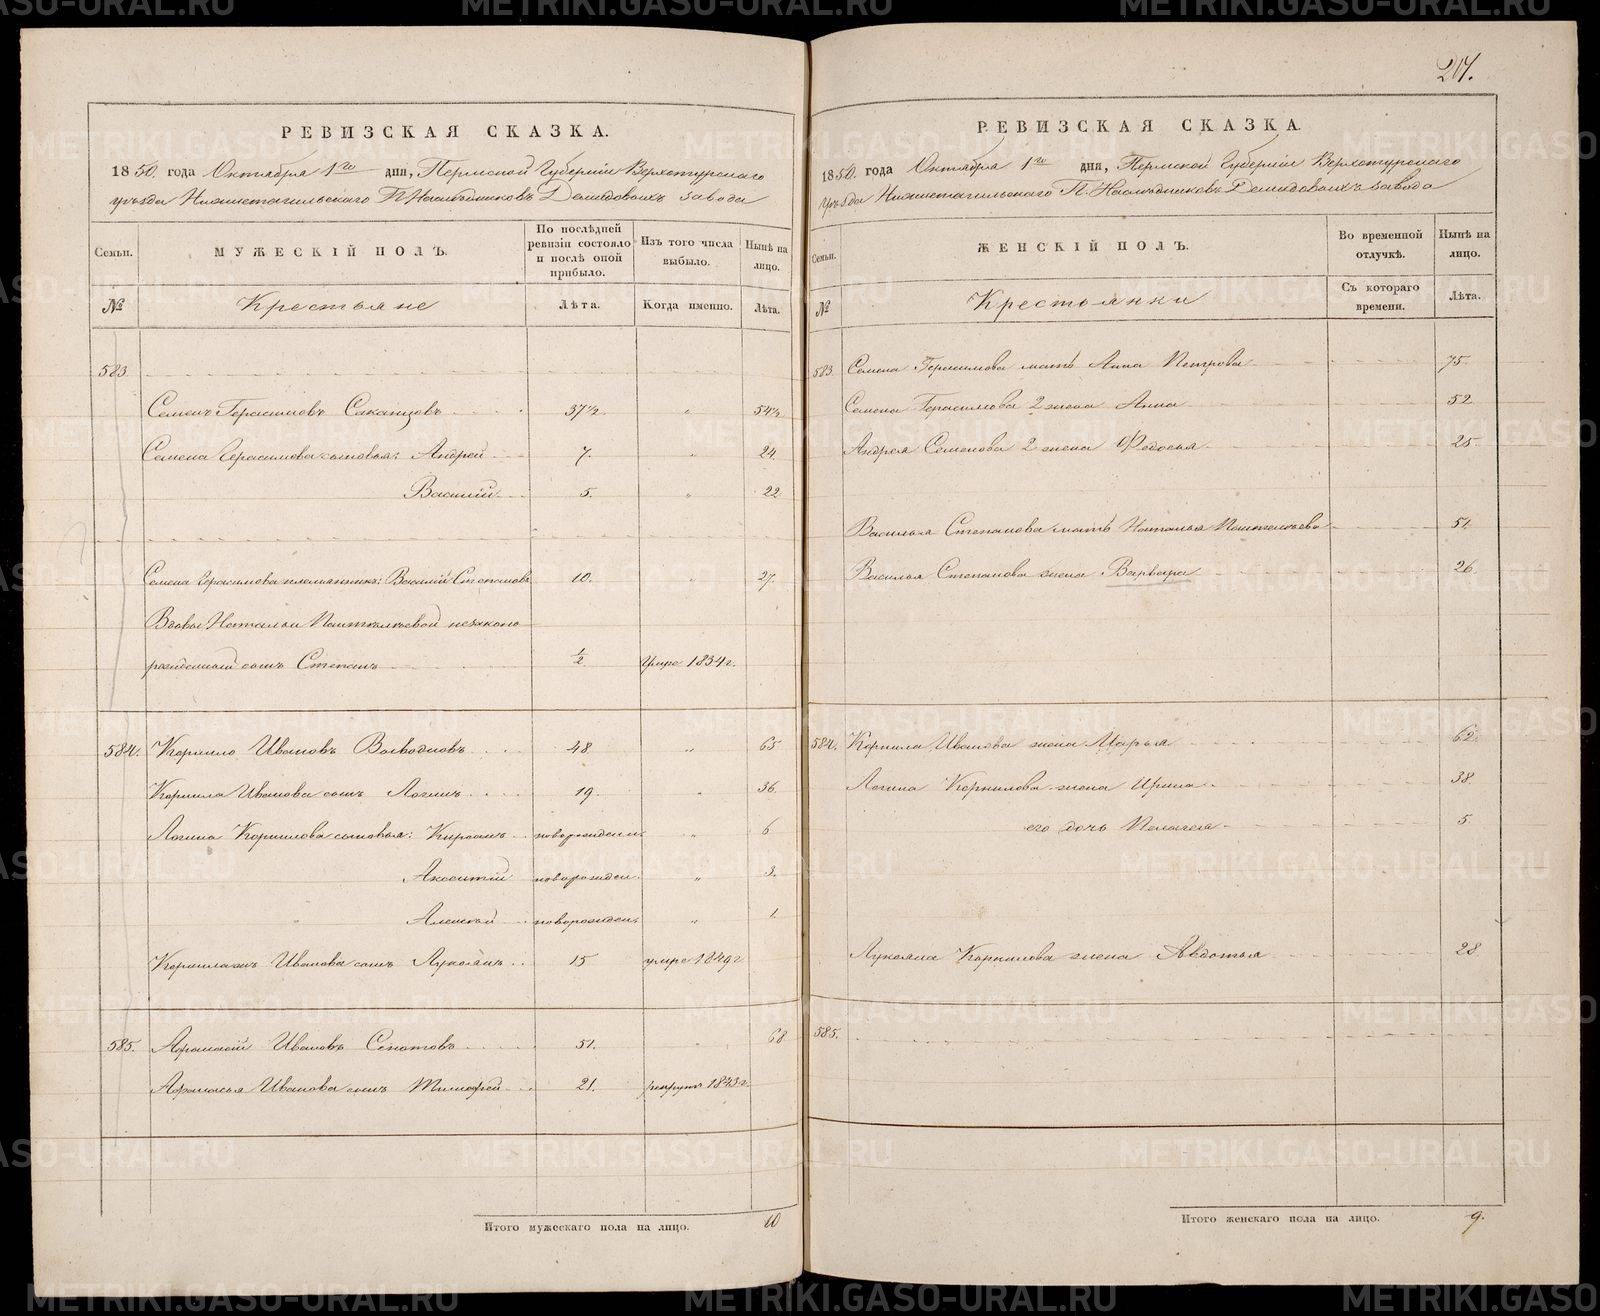 РЕВИЗСКАЯ СКАЗКА.
1850 года Октября 1го дня, Пермской Губернiи Верхотурскаго
уѣзда Нижнетагильскаго П. Наслѣдниковъ Демидовыхъ завода
Семьи. МУЖЕСКIЙ ПОЛЪ. По послѣдней ревизiи состояло и послѣ оной прибыло. Изъ того числа выбыло. Нынѣ на лицо.
№ Крестьяне Лѣта. Когда именно. Лѣта.
583.
Семенъ Герасимовъ 37½ " 54½
Семена Герасимова сыновья: Андрей 7. " 24
Василiй 5. " 22
Семена Герасимова племянникъ: Василiй Степановъ 10. " 27.
Вдовы Натальи незаконо
рожденный сынъ Степанъ ½ Умре 1834 г.
584. Корнило Ивановъ 48 " 65
Корнила Иванова сынъ Логинъ 19. " 36.
Логина Корнилова сыновья: новорожден. " 6
новорожден. " 3.
Алексѣй новорожден. " 1.
Иванова сынъ Лукоянъ 15 умре 1849 г
585. Афанасiй Ивановъ 51. " 68
Афанасья Иванова сынъ Тимофей 21. рекрутъ 1843 г.
Итого мужескаго пола на лицо. 10
217.
РЕВИЗСКАЯ СКАЗКА.
1850 года Октября 1го дня, Пермской Губернiи Верхотурскаго
уѣзда Нижнетагильскаго П. Наслѣдниковъ Демидовыхъ завода
Семьи. ЖЕНСКIЙ ПОЛЪ. Во временной отлучкѣ. Нынѣ на лицо.
№ Крестьянки Съ котораго времени. Лѣта.
583. Семена Герасимова мать Анна Петрова 75.
Семена Герасимова 2 жена Анна 52
Андрея Семенова 2 жена Федосья 25.
Василья Степанова мать Наталья 51.
Василья Степанова жена Варвара 26.
584. Корнила Иванова жена Марья 62.
Логина Корнилова жена Ирина 38
его дочь Пелагея 5.
Лукояна Корнилова жена Авдотья 28
585.
Итого женскаго пола на лицо. 9.
METRIKI.GASO-URAL.RU